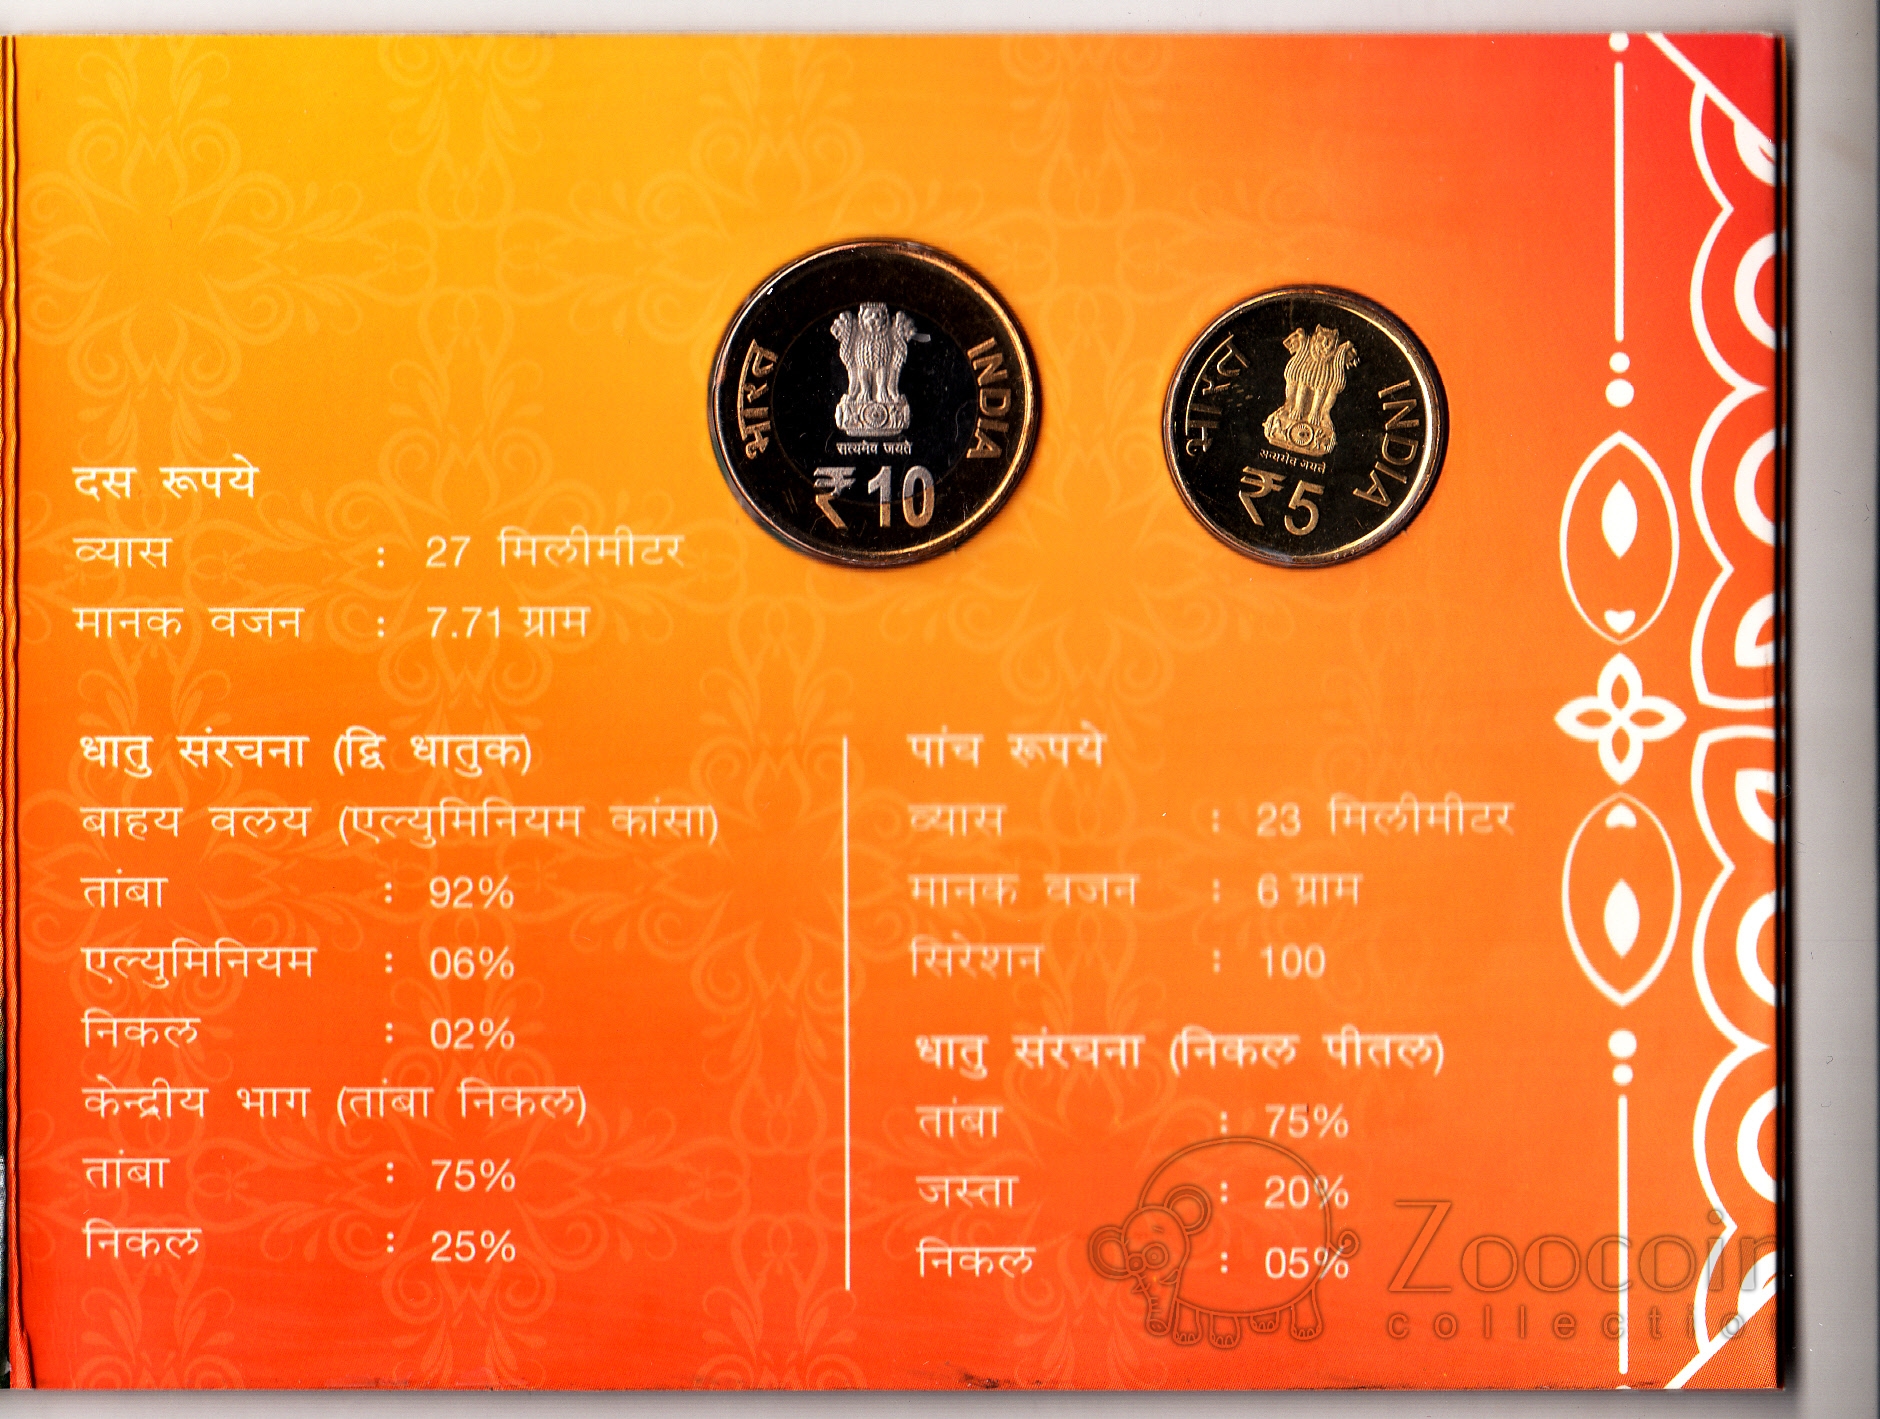 भारत
INDIA
सत्यमेव जयते
₹ 10
भारत
INDIA
सत्यमेव जयते
₹ 5
दस रूपये
व्यास : 27 मिलीमीटर
मानक वजन : 7.71 ग्राम
धातु संरचना (द्वि धातुक)
बाहय वलय (एल्युमिनियम कांसा)
तांबा : 92%
एल्युमिनियम : 06%
निकल : 02%
केन्द्रीय भाग (तांबा निकल)
तांबा : 75%
निकल : 25%
पांच रूपये
व्यास : 23 मिलीमीटर
मानक वजन : 6 ग्राम
सिरेशन : 100
धातु संरचना (निकल पीतल)
तांबा : 75%
जस्ता : 20%
निकल : 05%
Zoocoin
collectio